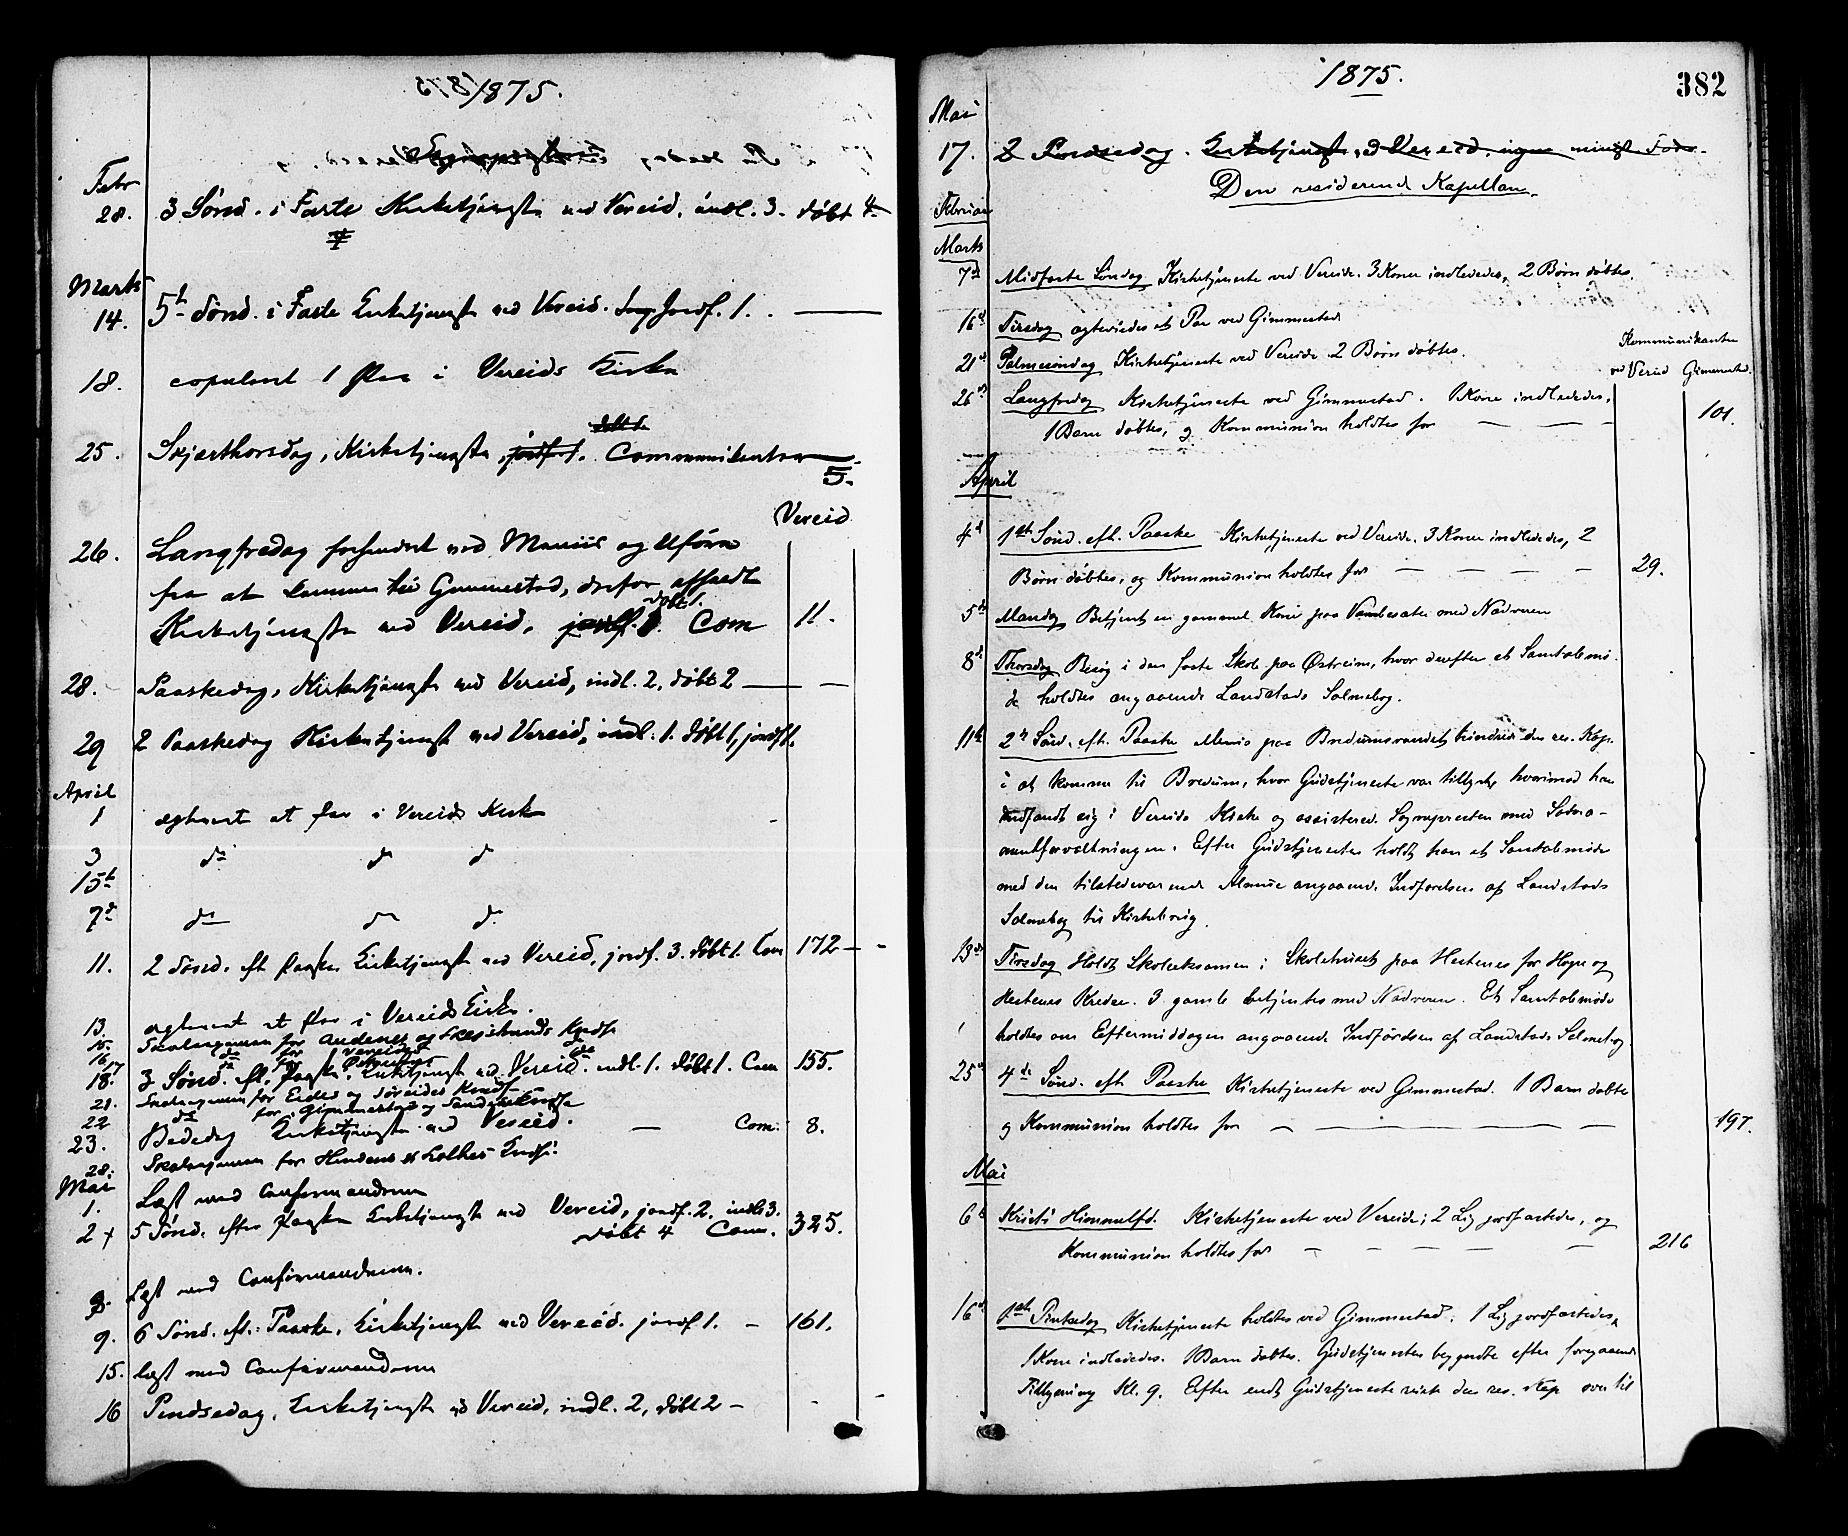 1875.
Febr
28. 3 Sønd. i Faste Kirketjeneste ved Vereid, indl. 3. døbt 4
Marts
14. 5t Sønd. i Faste Kirketjeneste ved Vereid. Jordf. 1.
18. copuleret 1 Par i Vereids Kirke
25. Skjærthorsdag, Kirketjeneste, jordf. 1. Communikanter
5.
Vereid
26. Langfredag forhindret ved Meniis og Uføre
fra at komme til Gimmestad, derfor afholdt
døbt 1.
Kirketjeneste ved Vereid, Com 11.
28. Paaskedag, Kirketjeneste ved Vereid, indl. 2, døbt 2
29 2 Paaskedag Kirketjenest ved Vereid, indl. 1. døbt 1, jordf 1.
April
1 ægteviet et Par i Vereids Kirke
3 do do do
15t
7d do do do
11. 2 Sønd. eft Paaske Kirketjeneste ved Vereid, jordf. 3. døbt 1. Com 172
13. ægteviet et Par i Vereids Kirke.
15. Skolexamen for Andenes og
16 do for Vereids do
17 do for do
18. 3 Sønd. eft. Paaske, Kirketjeneste ved Vereid. indl. 1. døbt 1. Com 155.
21. Skolexamen for Eides og Søreides Kreds
22 do for Gimmestad og Sandene Kredse
23. Bededag Kirketjeneste ved Vereid. Com: 8.
28. Skolexamen for Hindens og Kredse
Mai
1. Læst med Confirmanderne
2 5 Sønd. efter Paaske Kirketjeneste ved Vereid, jordf. 2. indl 3.
døbt 4 Com. 325.
8. Læst med Confirmanderne.
9. 6 Sønd. eft. Paaske, Kirketjeneste ved Vereid. jordf 1. 161.
15. læst med Confirmanderne
16 Pindsedag, Kirketjeneste v Vereid, indl. 2, døbt 2
1875.
382
Mai
17. 2 Pindsedag. Kirketjeneste ved Vereid, ingen
Den residerende Kapellan.
Februar
Marts
7d Midfaste Søndag Kirketjeneste ved Vereide. 3 Koner indlededes, 2 Børn døbtes.
16d Tirsdag ægteviedes et Par ved Gimmestad
Kommunikanter
ved Vereid Gimmestad.
21d Palmesøndag Kirketjeneste ved Vereide 2 Børn døbtes.
26d Langfredag Kirketjeneste ved Gimmestad. 1 Kone indlededes,
1 Barn døbtes, og Kommunion holdtes for 101.
April
4d 1ste Sønd. eft. Paaske Kirketjeneste ved Vereide. 3 Koner indlededes, 2
Børn døbtes, og Kommunion holdtes for 29.
5te Mandag Betjent en gammel Kone paa Vambesæter med Nadveren
8de Thorsdag Besøg i den faste Skole paa Østreim, hvor derefter et Samtalemø-
de holdtes angaaende Landstads Salmebog.
11te 2n Sønd. eft. Paaske Menis paa Bredeimsvandet hindrede den res. Kap.
i at komme til Bredeim, hvor Gudstjeneste var tillyst, hvorimod han
indfandt sig i Vereide Kirke og assisterede Sognepresten med Sakra-
mentforvaltningen. Efter Gudstjenesten holdt han et Samtalemøde
med den tilstedeværende Almue angaaende Indførelsen af Landstads
Salmebog til Kirkebrug.
13de Tirsdag Holdt Skoleeksamen i Skolehuset paa Hestenes for Høyne og
Hestenes Kredse. 3 gamle betjentes med Nadveren. Et Samtalemøde
holdtes om Eftermiddagen angaaende Indførelsen af Landstads Salmebog
25de 4de Sønd. eft. Paaske Kirketjeneste ved Gimmestad. 1 Barn døbtes
og Kommunion holdtes for 197.
Mai
6te Kristi Himmelfd. Kirketjeneste ved Vereide; 2 Lig jordfæstedes, og
Kommunion holdtes for 216
16d 1ste Pintsedag Kirketjeneste holdtes ved Gimmestad. 1 Lig jordfæstedes,
1 Kone indlededes. 1 Barn døbtes. Gudstjenesten begyndte efter foregaaende
Tillysning Kl. 9. Efter endt Gudstjeneste reiste den res. Kap over til